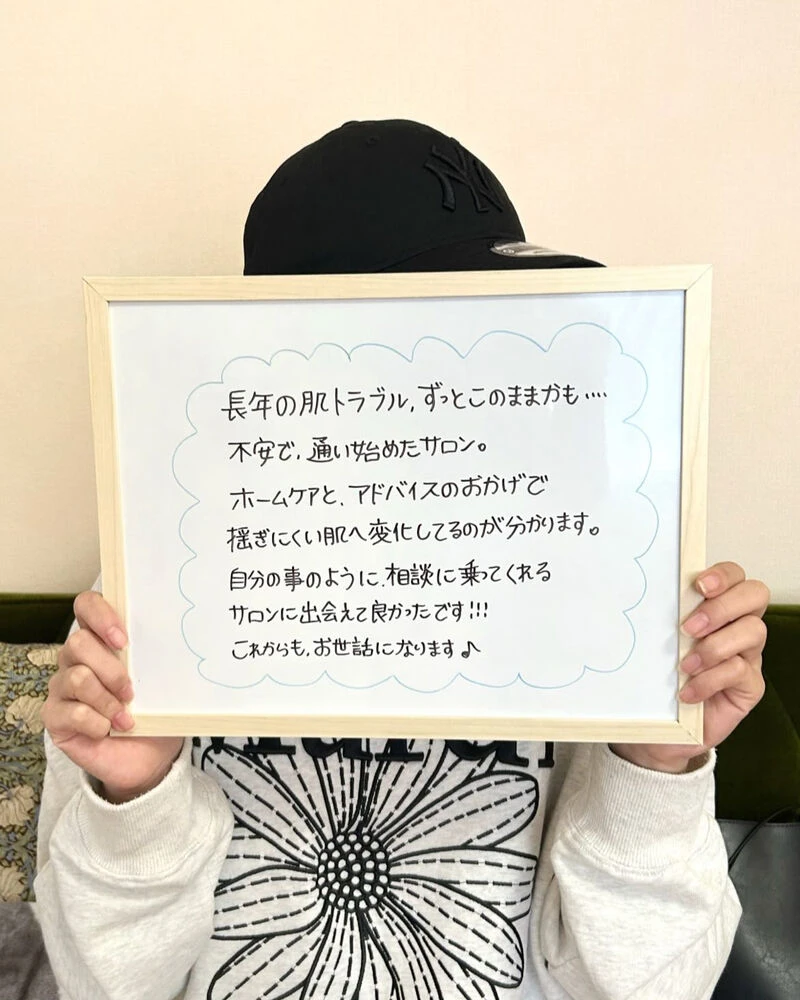 NY
長年の肌トラブル,ずっとこのままかも‥‥
不安で,通い始めたサロン。
ホームケアと,アドバイスのおかげで
揺ぎにくい肌へ変化してるのが分かります。
自分の事のように,相談に乗ってくれる
サロンに出会えて良かったです!!!
これからも,お世話になります♪